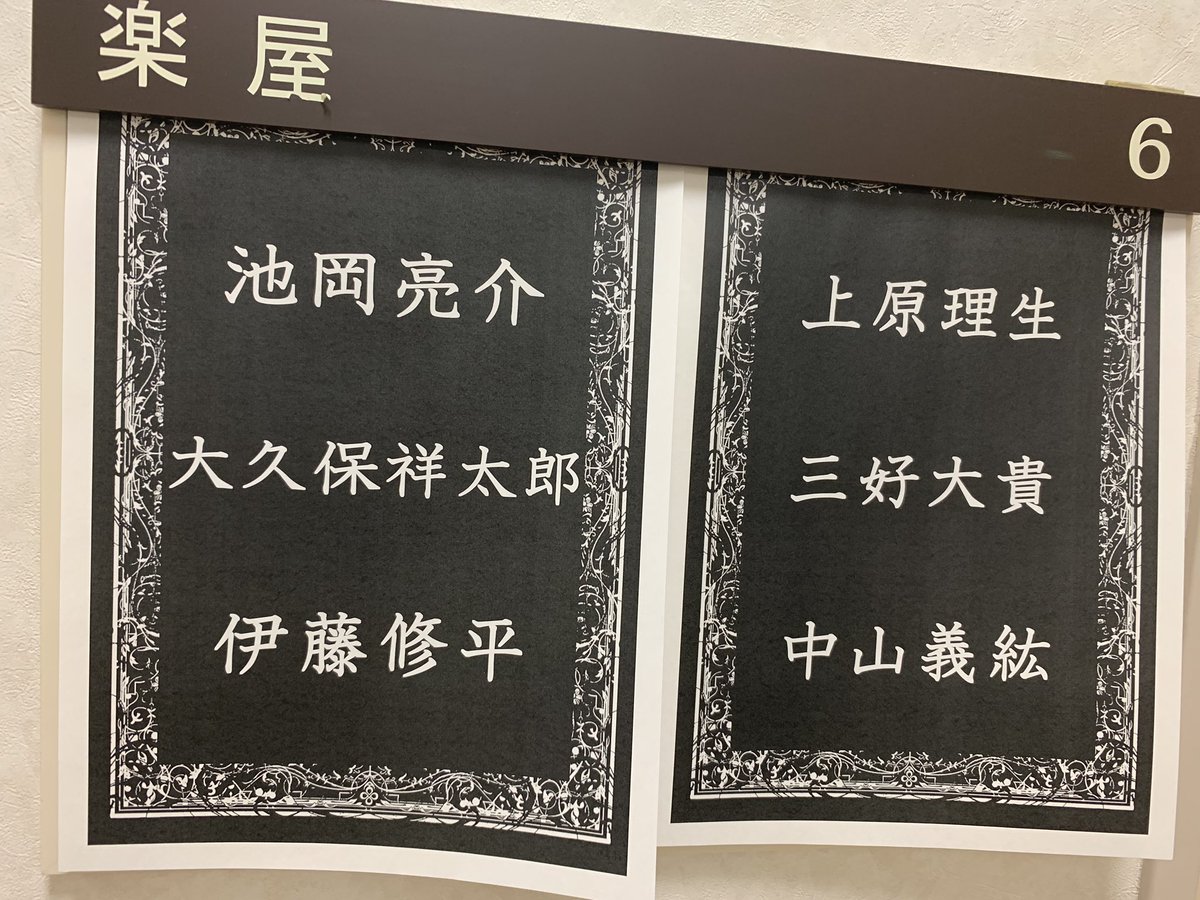 楽屋 6
池岡亮介
大久保祥太郎
伊藤修平
上原理生
三好大貴
中山義紘